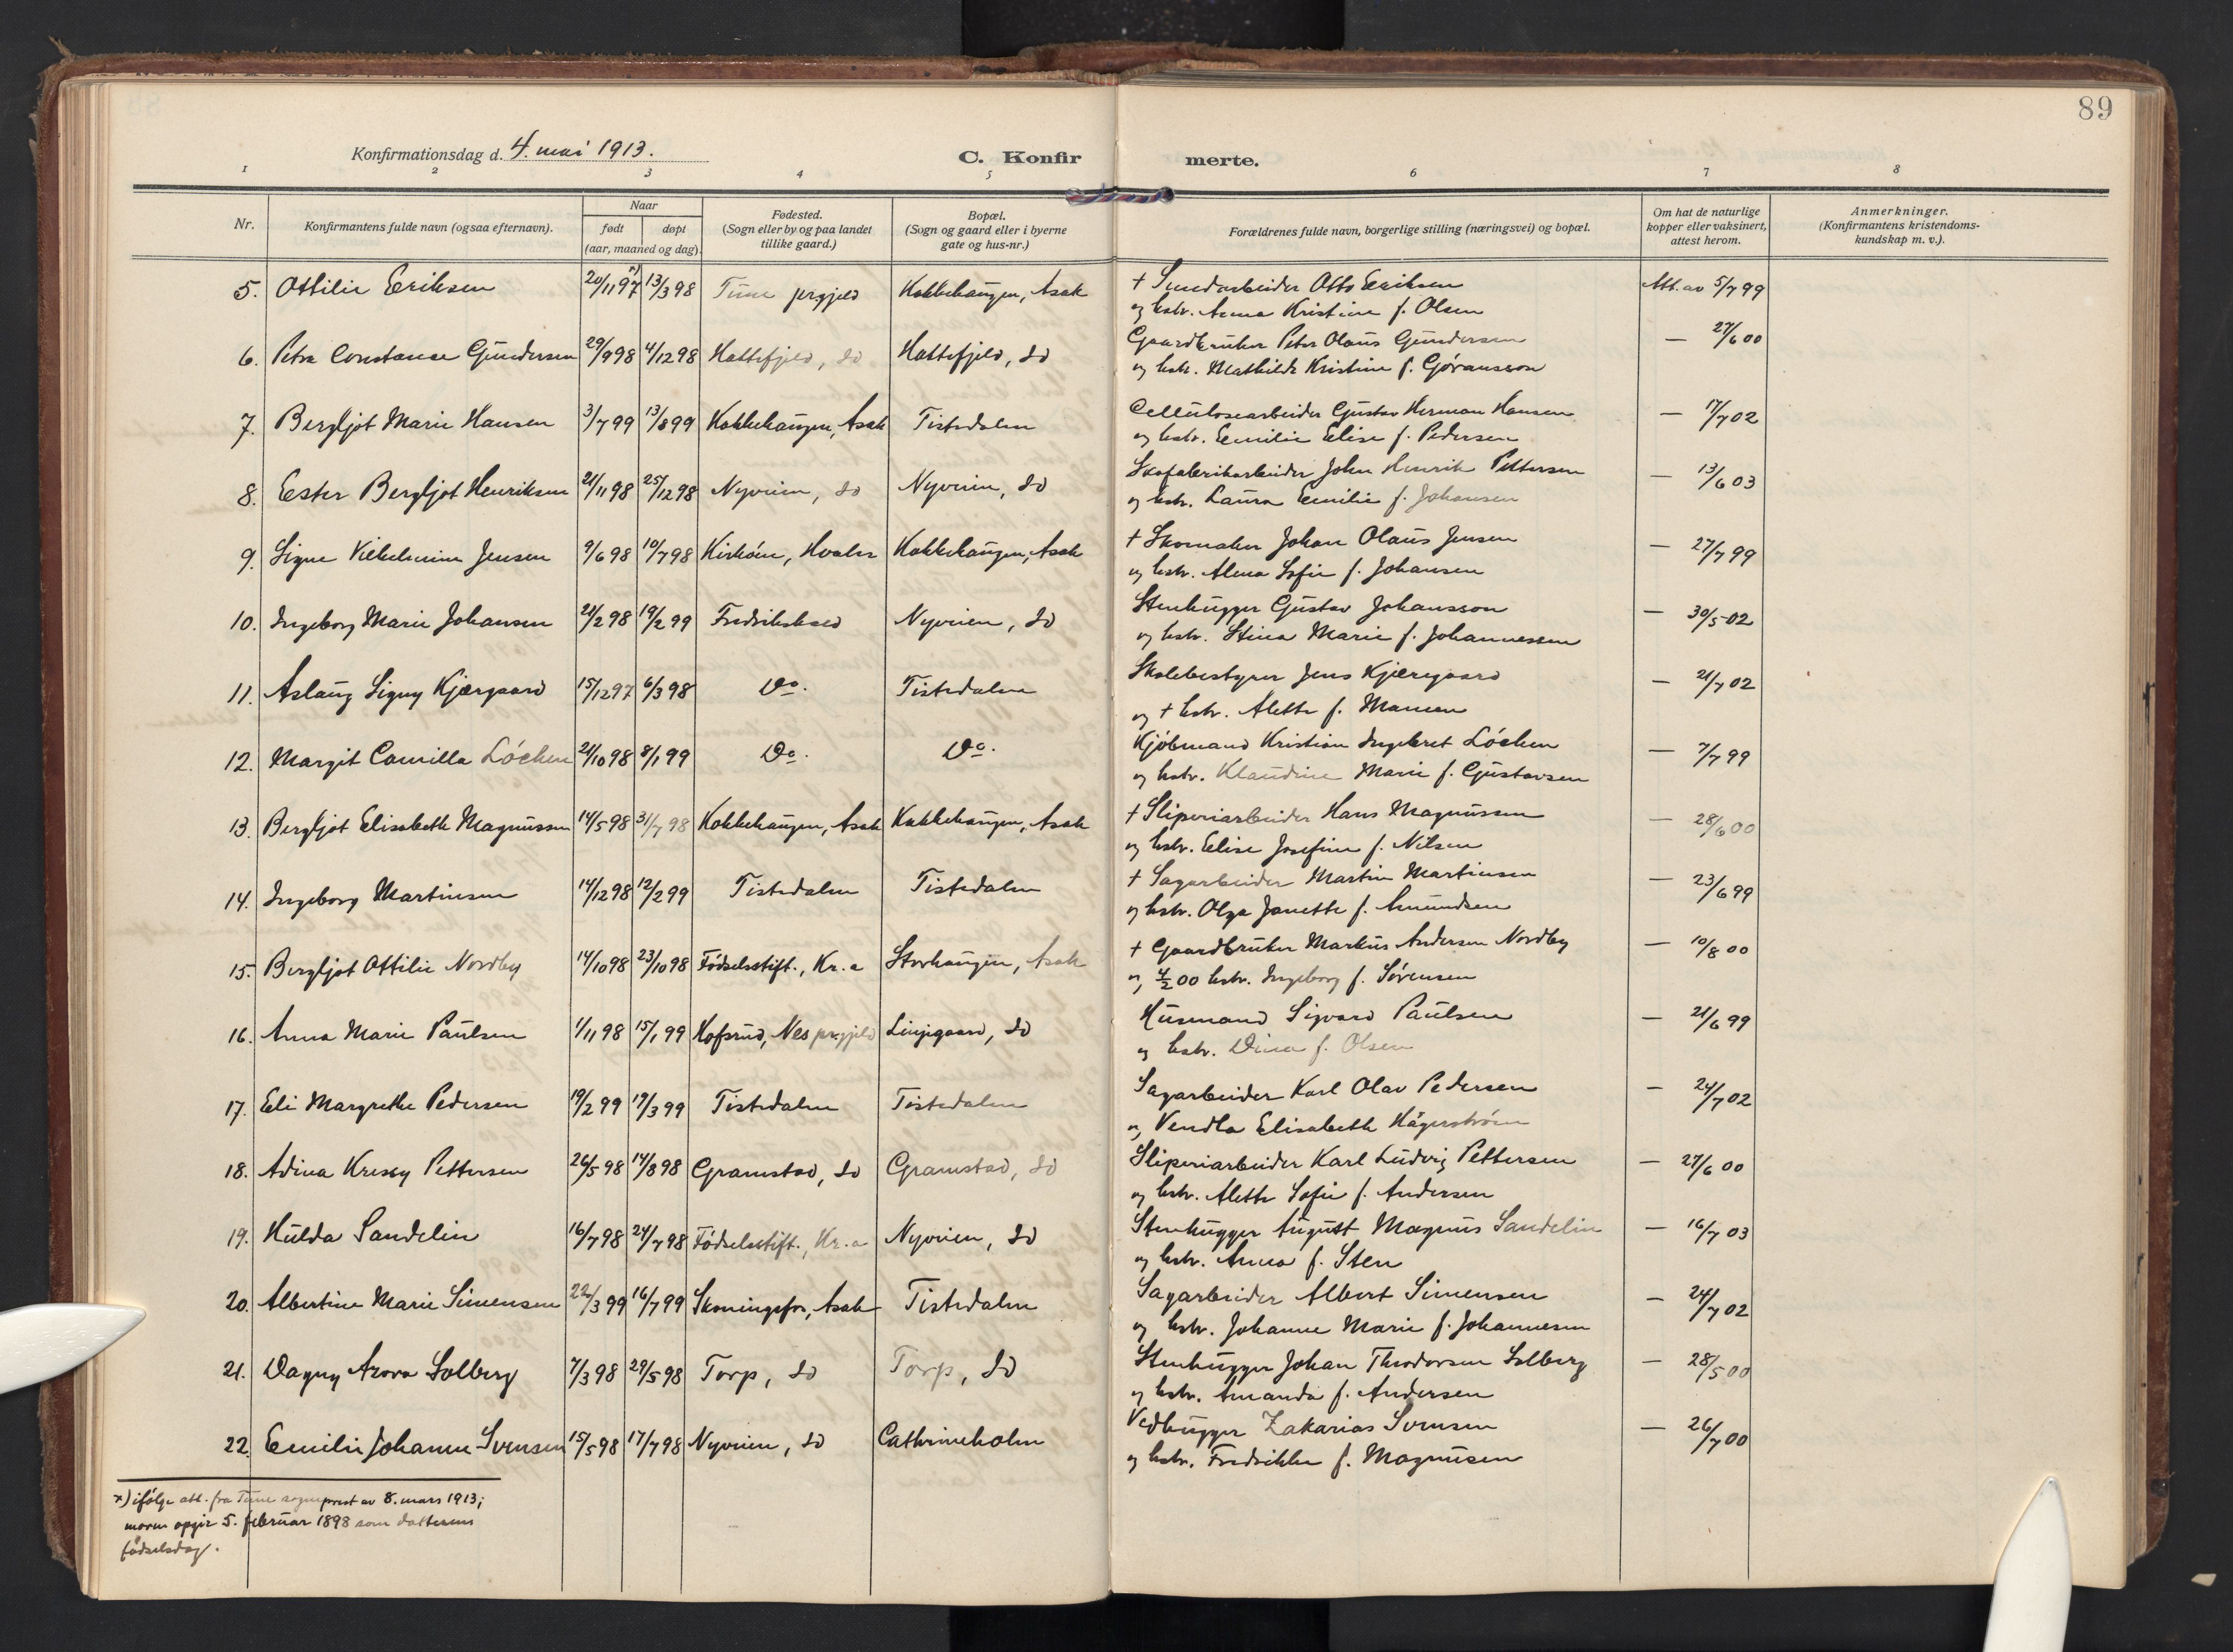 89
Konfirmationsdag d. 4. mai 1913. C. Konfir merte.
1 2 3 4 5 6 7 8
Nr. Konfirmantens fulde navn (ogsaa efternavn). Naar født døpt (aar, maaned og dag). Fødested. (Sogn eller by og paa landet tillike gaard.) Bopæl. (Sogn og gaard eller i byerne gate og hus-nr.) Forældrenes fulde navn, borgerlige stilling (næringsvei) og bopæl. Om hat de naturlige kopper eller vaksinert, attest herom. Anmerkninger. (Konfirmantens kristendoms-kundskap m. v.).
5. Ottilie Eriksen 20/11 97 x) 13/3 98 Tune prgjeld Kokkehaugen, Asak † Sundarbeider Otto Eriksen Att. av 5/7 99
og hstr. Anna Kristine f. Olsen
6. Petra Constanse Gundersen 29/9 98 4/12 98 Hattefjeld, do Hattefjeld, do Gaardbruker Peter Olaus Gundersen — 27/6 00
og hstr. Mathilde Kristine f. Gjøransson
7. Bergljot Marie Hansen 3/7 99 13/8 99 Kokkehaugen, Asak Tistedalen Cellulosearbeider Gustav Herman Hansen — 17/7 02
og hstr. Emilie Elise f. Pedersen
8. Ester Bergljot Henriksen 21/11 98 25/12 98 Nyveien, do Nyveien, do Skofabrikarbeider John Henrik Pettersen — 13/6 03
og hstr. Laura Emilie f. Johansen
9. Signe Vilhelmine Jensen 9/6 98 10/7 98 Kirkøen, Hvaler Kokkehaugen, Asak † Skomaker Johan Olaus Jensen — 27/7 99
og hstr. Alma Sofie f. Johansen
10. Ingeborg Marie Johansen 21/2 98 19/2 99 Fredrikshald Nyveien, do Stenhugger Gustav Johansson — 30/5 02
og hstr. Stina Marie f. Johannessen
11. Aslaug Signy Kjærgaard 15/12 97 6/3 98 Do. Tistedalen Skolebestyrer Jens Kjærgaard — 21/7 02
og † hstr. Alette f. Mamen
12. Margit Camilla Löchen 21/10 98 8/1 99 Do. Do. Kjøbmand Kristian Ingebret Löchen — 7/7 99
og hstr. Klaudine Marie f. Gustavsen
13. Bergljot Elisabeth Magnussen 14/5 98 31/7 98 Kokkehaugen, Asak Kokkehaugen, Asak † Sliperiarbeider Hans Magnussen — 28/6 00
og hstr. Elise Josefine f. Nilsen
14. Ingeborg Martinsen 14/12 98 12/2 99 Tistedalen Tistedalen † Sagarbeider Martin Martinsen — 23/6 99
og hstr. Olga Janette f. Amundsen
15. Bergljot Ottilie Nordby 14/10 98 23/10 98 Fødselsstift., Kr.a Storhaugen, Asak † Gaardbruker Markus Andersen Nordby — 10/8 00
og 4/2 00 hstr. Ingeborg f. Sørensen
16. Anna Marie Paulsen 1/11 98 15/1 99 Hofsrud, Nes prgjeld Linjegaard, do Husmand Sigvard Paulsen — 21/6 99
og hstr. Dina f. Olsen
17. Eli Margrethe Pedersen 19/2 99 19/3 99 Tistedalen Tistedalen Sagarbeider Karl Olav Pedersen — 24/7 02
og Vendla Elisabeth Hägerström
18. Adina Kressy Pettersen 26/5 98 14/8 98 Gramstad, do Gramstad, do Sliperiarbeider Karl Ludvig Pettersen — 27/6 00
og hstr. Alette Sofie f. Andersen
19. Hulda Sandelin 16/7 98 24/7 98 Fødselsstift., Kr.a Nyveien, do Stenhugger August Magnus Sandelin — 16/7 03
og hstr. Anna f. Sten
20. Albertine Marie Simensen 22/3 99 16/7 99 Skoningsfos, Asak Tistedalen Sagarbeider Albert Simensen — 24/7 02
og hstr. Johanne Marie f. Johannesen
21. Dagny Asora Solberg 7/3 98 29/5 98 Torp, do Torp, do Stenhugger Johan Theodorsen Solberg — 28/5 00
og hstr. Amanda f. Andersen
22. Emilie Johanne Svensen 15/5 98 17/7 98 Nyveien, do Cathrineholm Vedhugger Zakarias Svensen — 26/7 00
og hstr. Fredrikke f. Magnussen
x) ifølge att. fra Tune sogneprest av 8. mars 1913;
moren opgir 5. februar 1898 som datterens
fødselsdag.